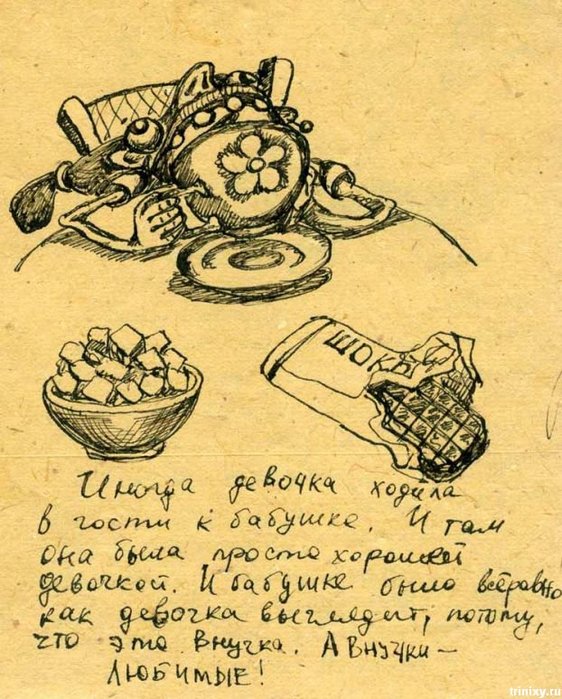 ШОКА
Иногда девочка ходила
в гости к бабушке. И там
она была просто хорошей
девочкой. И бабушке было всёравно
как девочка выглядит, потому,
что это внучка. А внучки –
ЛЮБИМЫЕ!
trinixy.ru